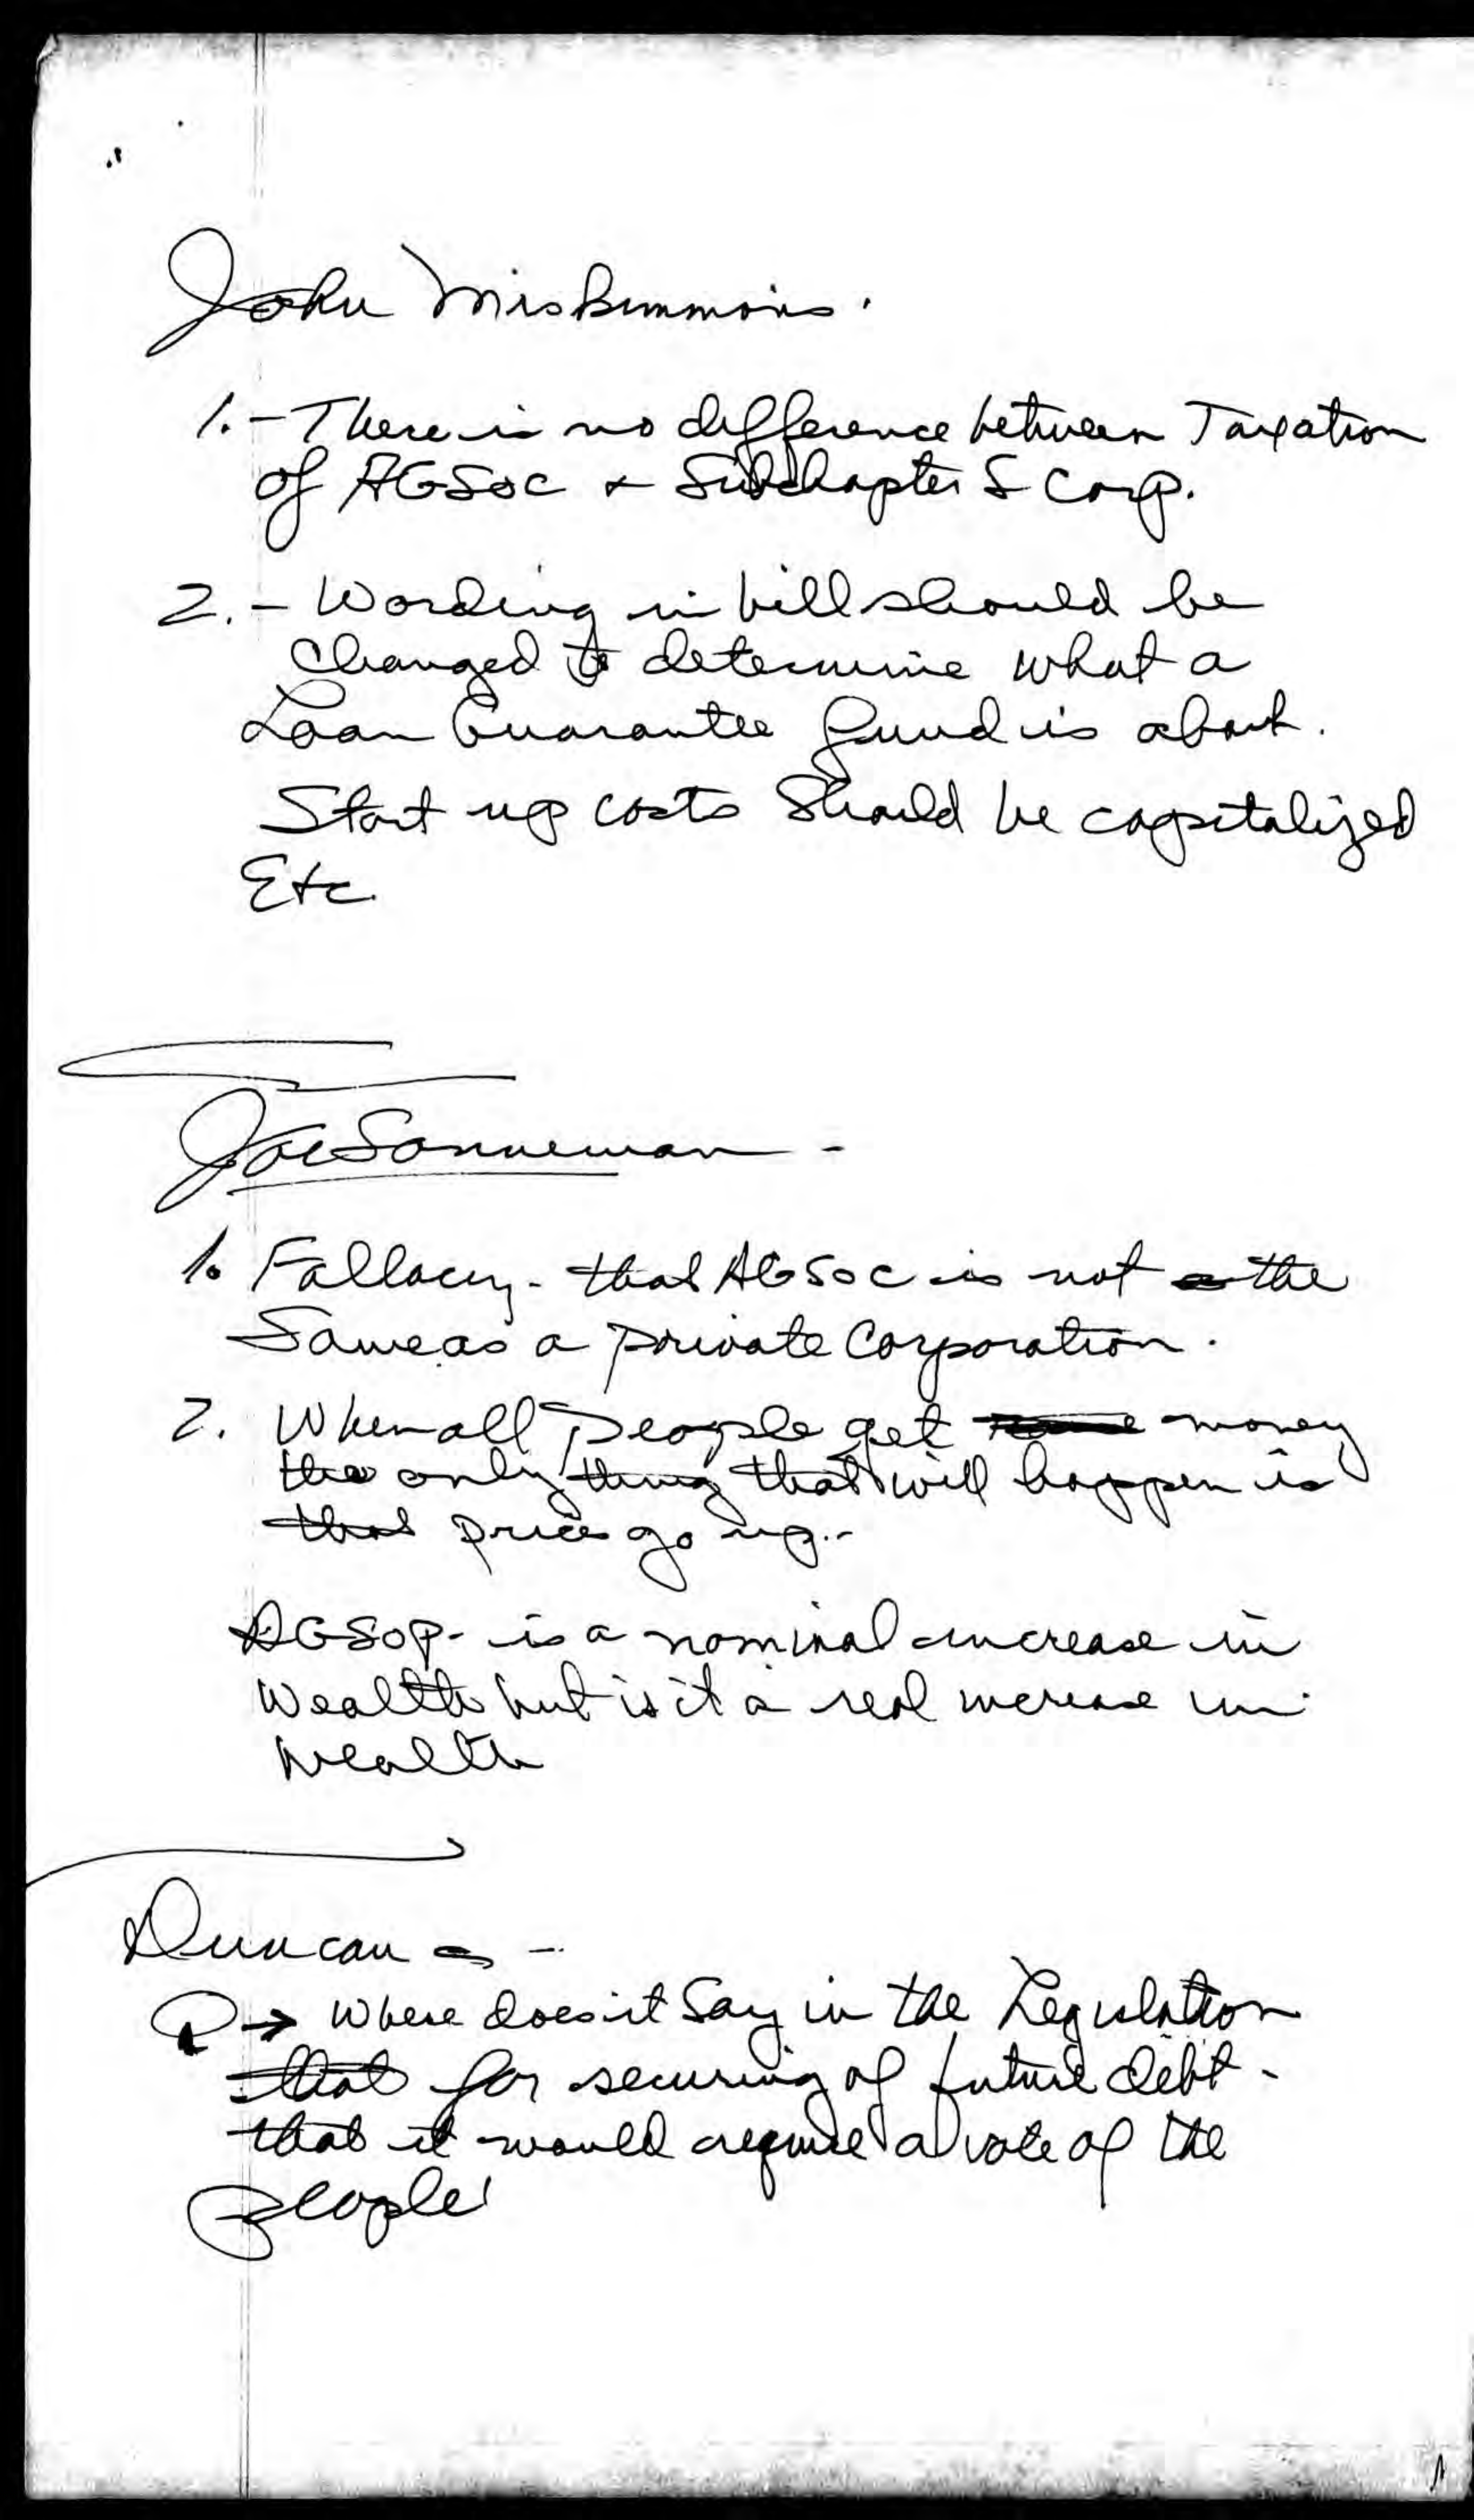 John
1. - There is no difference between Taxation
of AGSOC & Subchapter S Corp.
2. - Wording in bill should be
changed to determine what a
Loan Guarantee fund is about.
Start up costs Should be capitalized
Etc.
Joe Sonneman -
1. Fallacy - that AGSOC is not the
Same as a private Corporation.
2. When all People get money
the only thing that will happen is
that prices go up. -
AGSOP - is a nominal increase in
Wealth but is it a real increase in
wealth
Duncan -
Q → Where does it Say in the Legislation
that for securing of future debt -
that it would require a vote of the
people